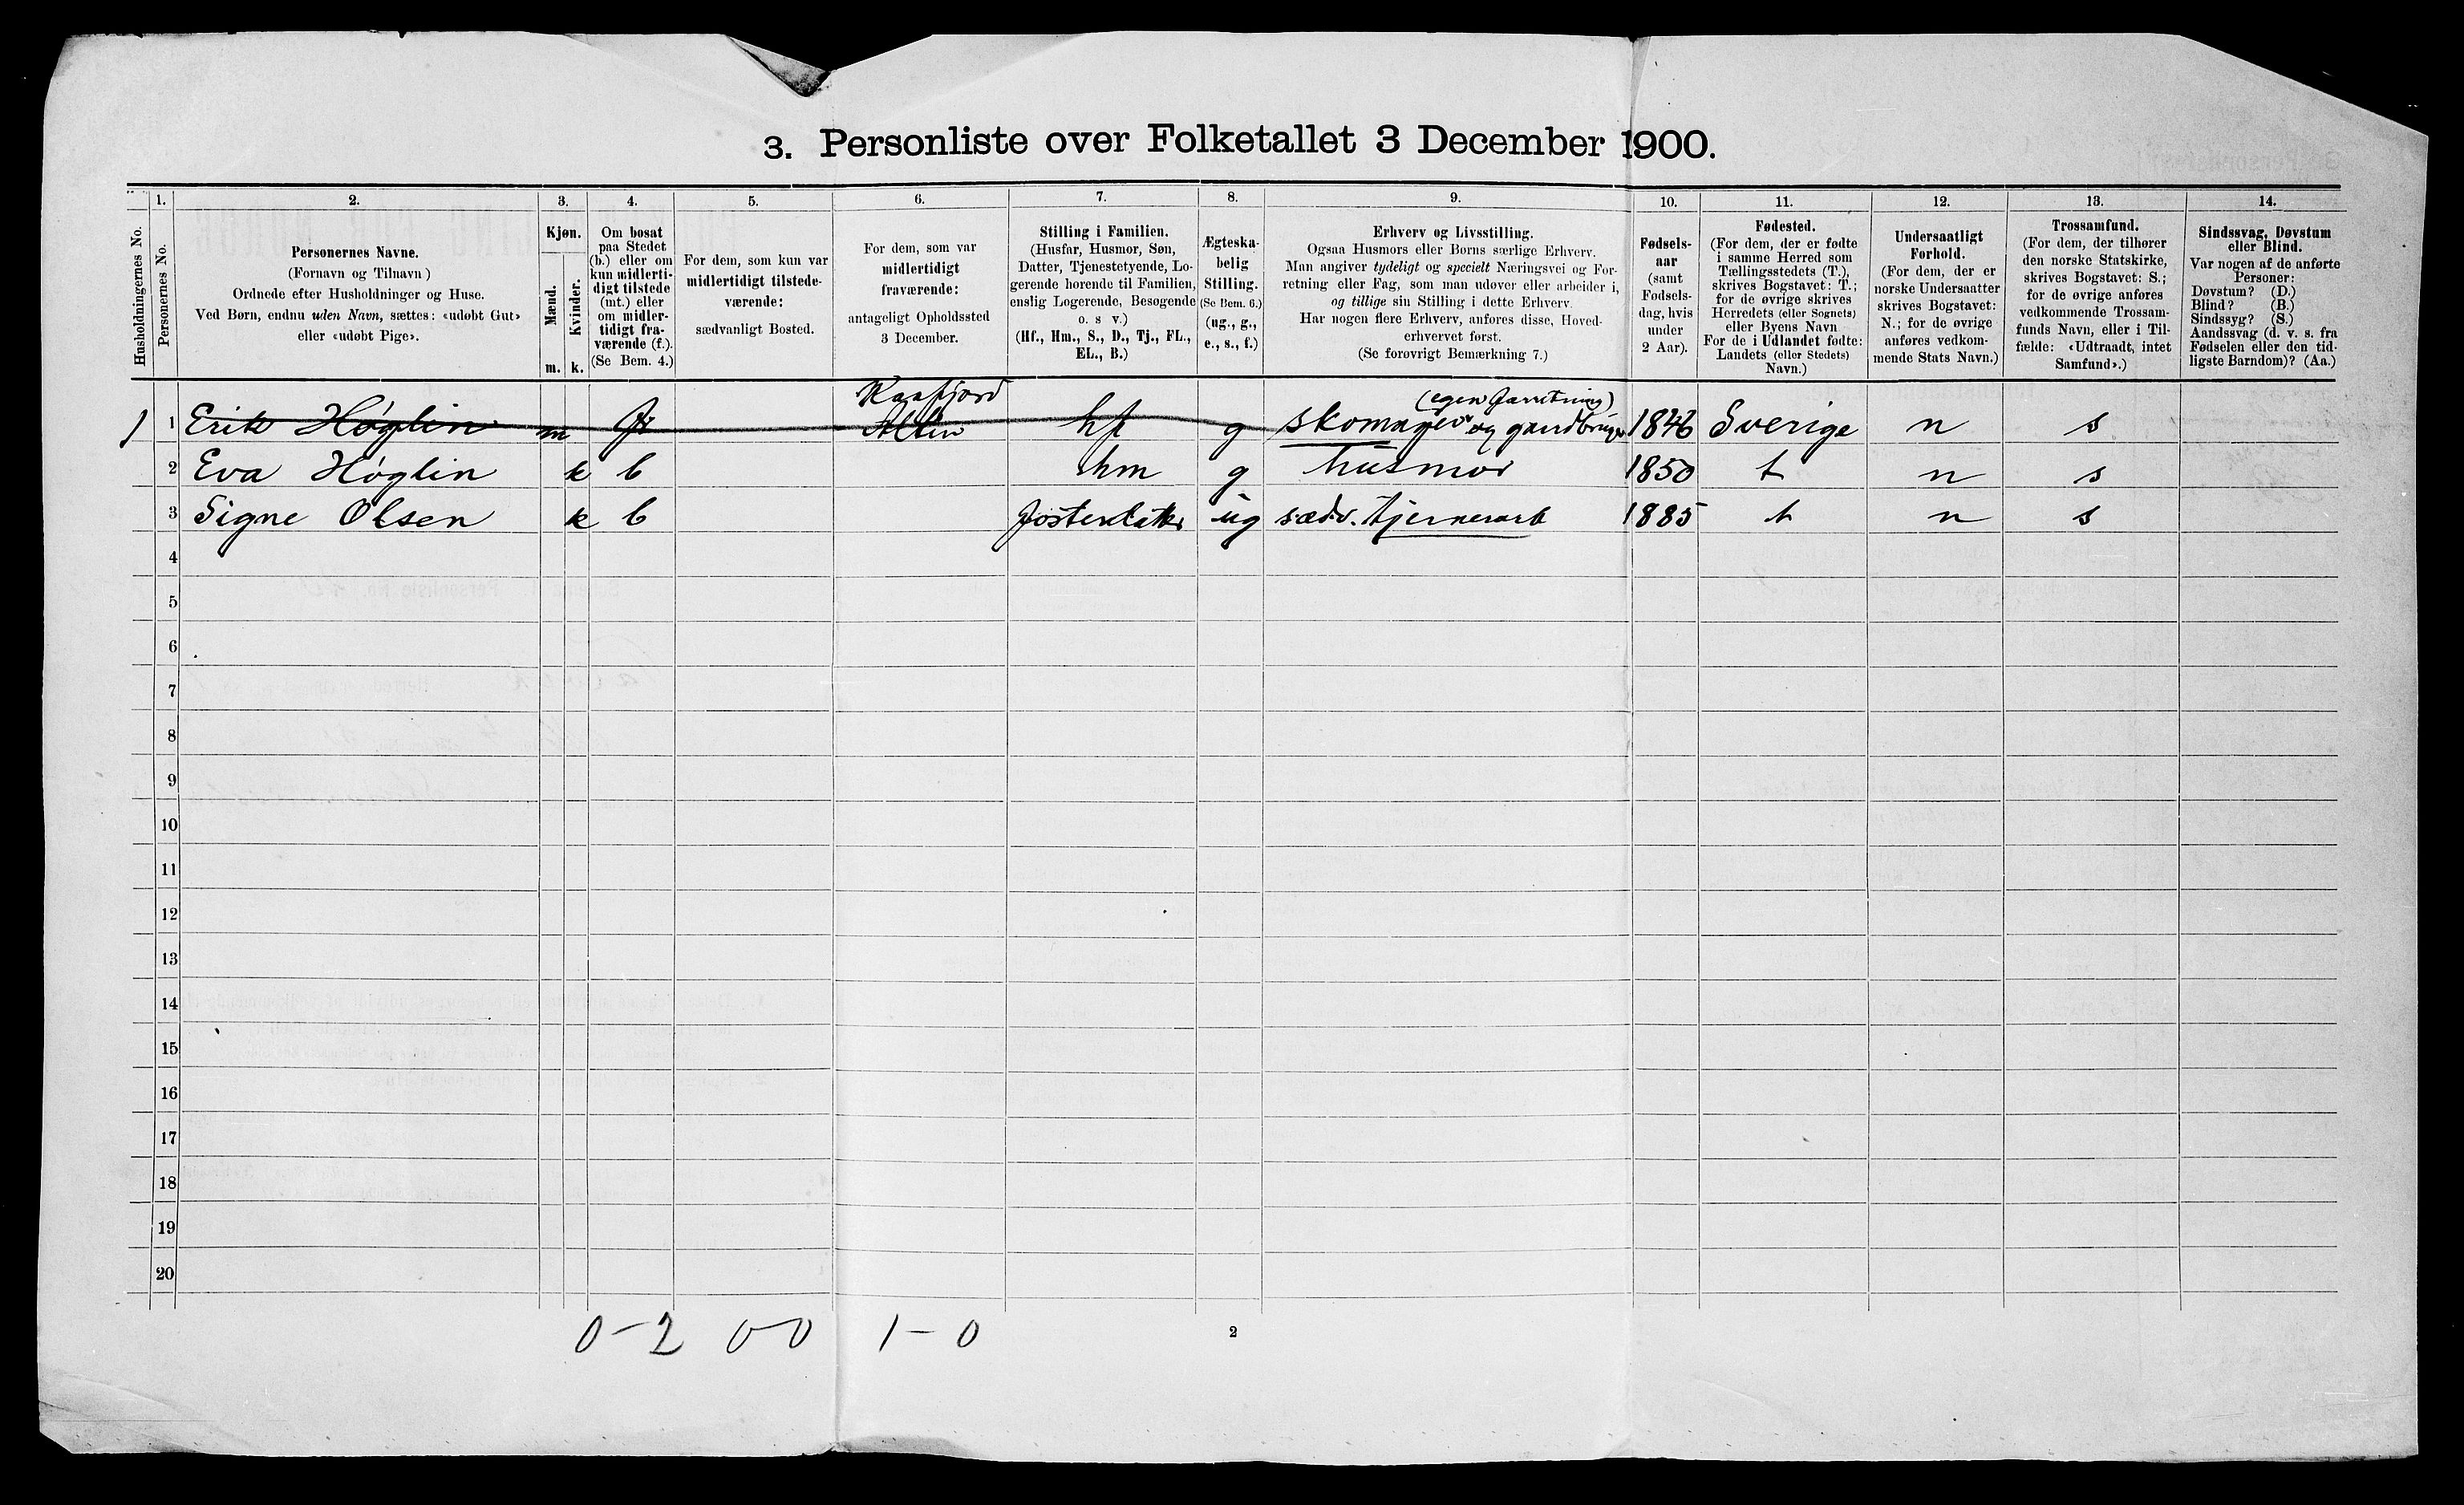 3. Personliste over Folketallet 3 December 1900.
1. 2. 3. 4. 5. 6. 7. 8. 9. 10. 11. 12. 13. 14.
Husholdningernes No.
Personernes No.
Personernes Navne.
(Fornavn og Tilnavn)
Ordnede efter Husholdninger og Huse.
Ved Børn, endnu uden Navn, sættes: «udøbt Gut»
eller «udøbt Pige».
Kjøn.
Mænd.
Kvinder.
m. k.
Om bosat
paa Stedet
(b.) eller om
kun midlerti-
digt tilstede
(mt.) eller
om midler-
tidigt fra-
værende (f.).
(Se Bem. 4.)
For dem, som kun var
midlertidigt tilstede-
værende:
sædvanligt Bosted.
For dem, som var
midlertidigt
fraværende:
antageligt Opholdssted
3 December.
Stilling i Familien.
(Husfar, Husmor, Søn,
Datter, Tjenestetyende, Lo-
gerende hørende til Familien,
enslig Logerende, Besøgende
o. s v.)
(Hf., Hm., S., D., Tj., FL.,
EL., B.)
Ægteska-
belig
Stilling.
(Se Bem. 6.)
(ug., g.,
e., s., f.)
Erhverv og Livsstilling.
Ogsaa Husmors eller Børns særlige Erhverv.
Man angiver tydeligt og specielt Næringsvei og For-
retning eller Fag, som man udøver eller arbeider i,
og tillige sin Stilling i dette Erhverv.
Har nogen flere Erhverv, anføres disse, Hoved-
erhvervet først.
(Se forøvrigt Bemærkning 7.)
Fødsels-
aar
(samt
Fødsels-
dag, hvis
under
2 Aar).
Fødested.
(For dem, der er fødte
i samme Herred som
Tællingsstedets (T.),
skrives Bogstavet: T.;
for de øvrige skrives
Herredets (eller Sognets)
eller Byens Navn
For de i Udlandet fødte:
Landets (eller Stedets)
Navn.)
Undersaatligt
Forhold.
(For dem, der er
norske Undersaatter
skrives Bogstavet:
N.; for de øvrige
anføres vedkom-
mende Stats Navn.)
Trossamfund.
(For dem, der tilhører
den norske Statskirke,
skrives Bogstavet: S.;
for de øvrige anføres
vedkommende Trossam-
funds Navn, eller i Til-
fælde: «Udtraadt, intet
Samfund».)
Sindssvag, Døvstum
eller Blind.
Var nogen af de anførte
Personer:
Døvstum? (D.)
Blind? (B.)
Sindssyg? (S.)
Aandssvag (d. v. s. fra
Fødselen eller den tid-
ligste Barndom)? (Aa.)
Kaafjord (egen Forretning)
1 1 Erik Høglin m f Alten hf g skomager og gaardbruger 1846 Sverige n s
2 Eva Høglin k b hm g husmor 1850 t n s
3 Signe Olsen k b fosterdatter ug sædv. tjenerarb 1885 t n s
4
5
6
7
8
9
10
11
12
13
14
15
16
17
18
19
20
0-2 0-0 1-0
2